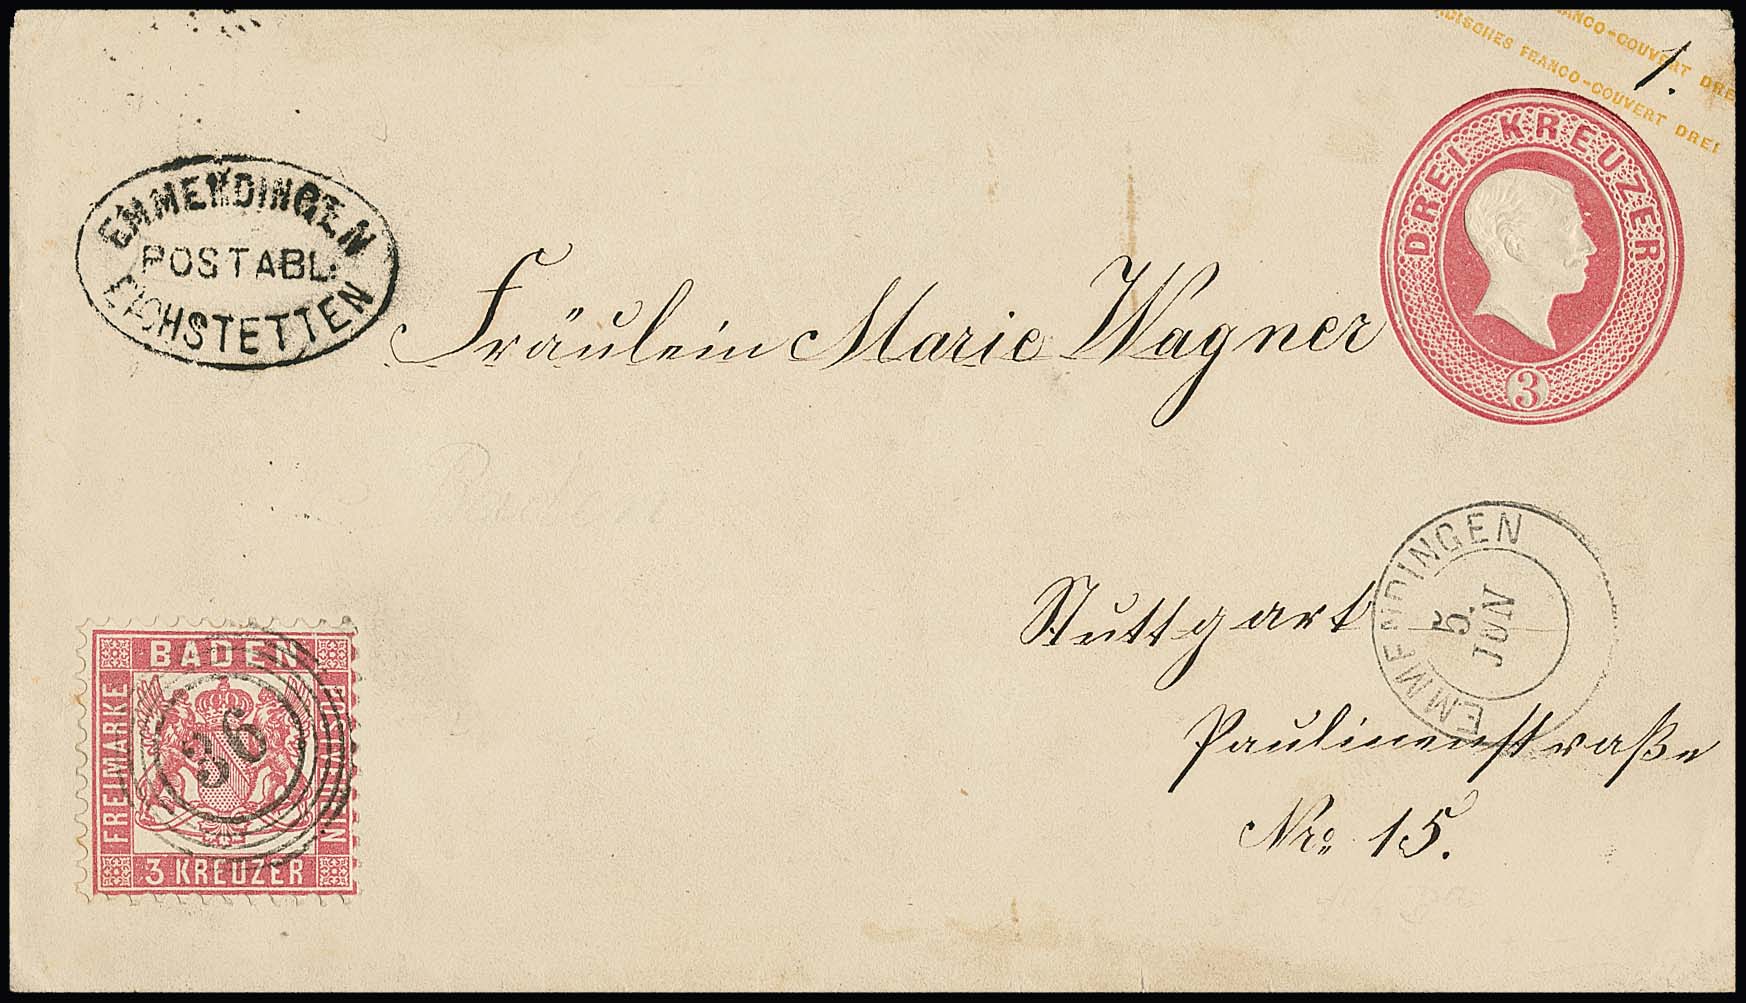 FRANCO-COUVERT DRE
DISCHES FRANCO-COUVERT DREI
1.
DREI KREUZER
3
EMMENDINGEN
POSTABL.
EICHSTETTEN
Fräulein Marie Wagner
Baden
EMMENDINGEN
5.
JUN
Stuttgart
Paulinenstraße
Nro 15.
BADEN
FREIMARKE
36
3 KREUZER